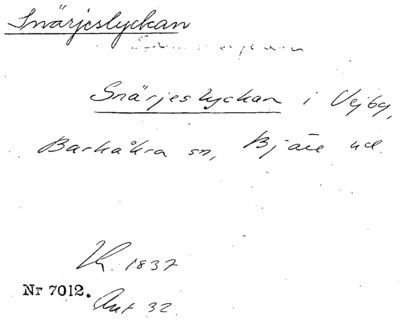 Snärjeslyckan
Snärjeslyckan i Vejby,
Barkåkra sn, Bjäre hd.
Lh. 1837
Nr 7012. Akt 32.